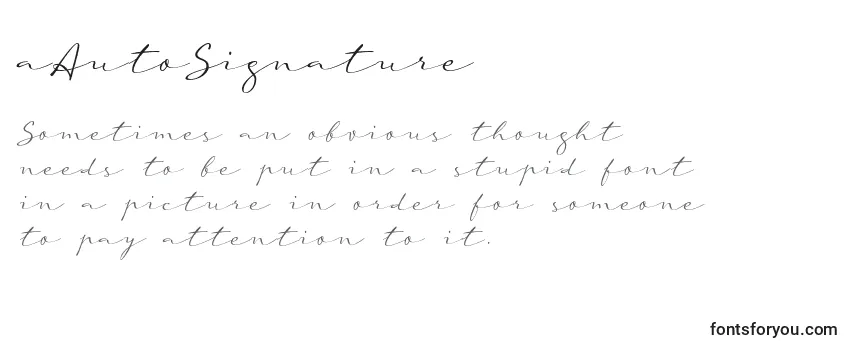 aAutoSignature
Sometimes an obvious thought
needs to be put in a stupid font
in a picture in order for someone
to pay attention to it.
fontsforyou.com